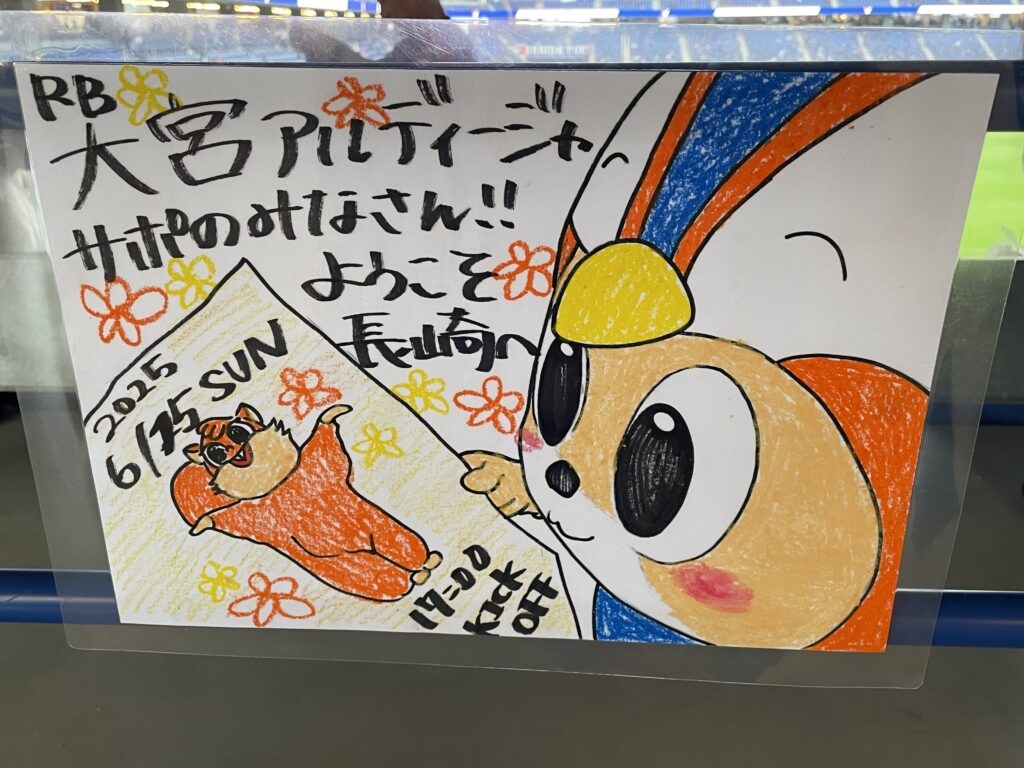 RB
大宮アルディージャ
サポのみなさん!!
ようこそ
長崎へ
2025
6/15 SUN
17:00
KICK
OFF